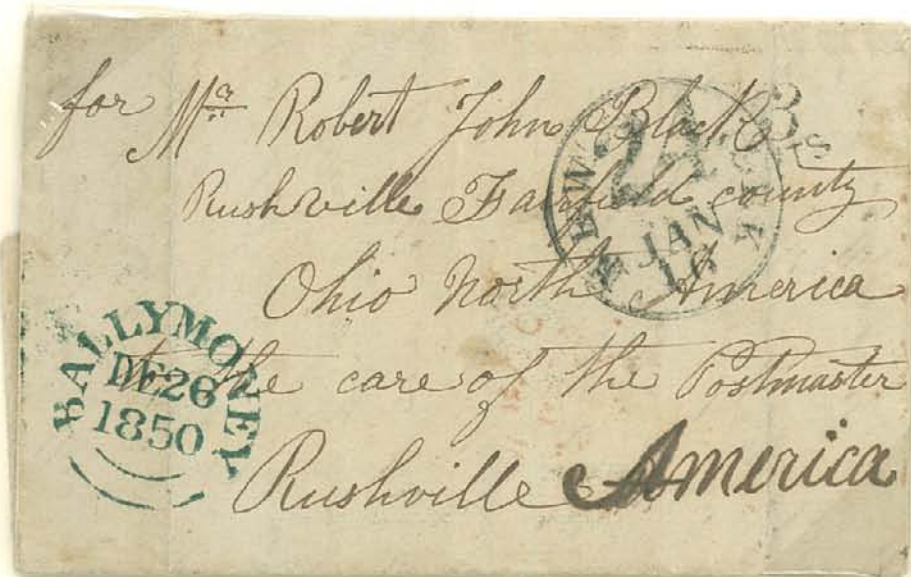 for Mr Robert John Black
Rushville Fairfield county
Ohio North America
to the care of the Postmaster
Rushville America
BALLYMONEY
DE 26
1850
NEW YORK
24
JAN
16